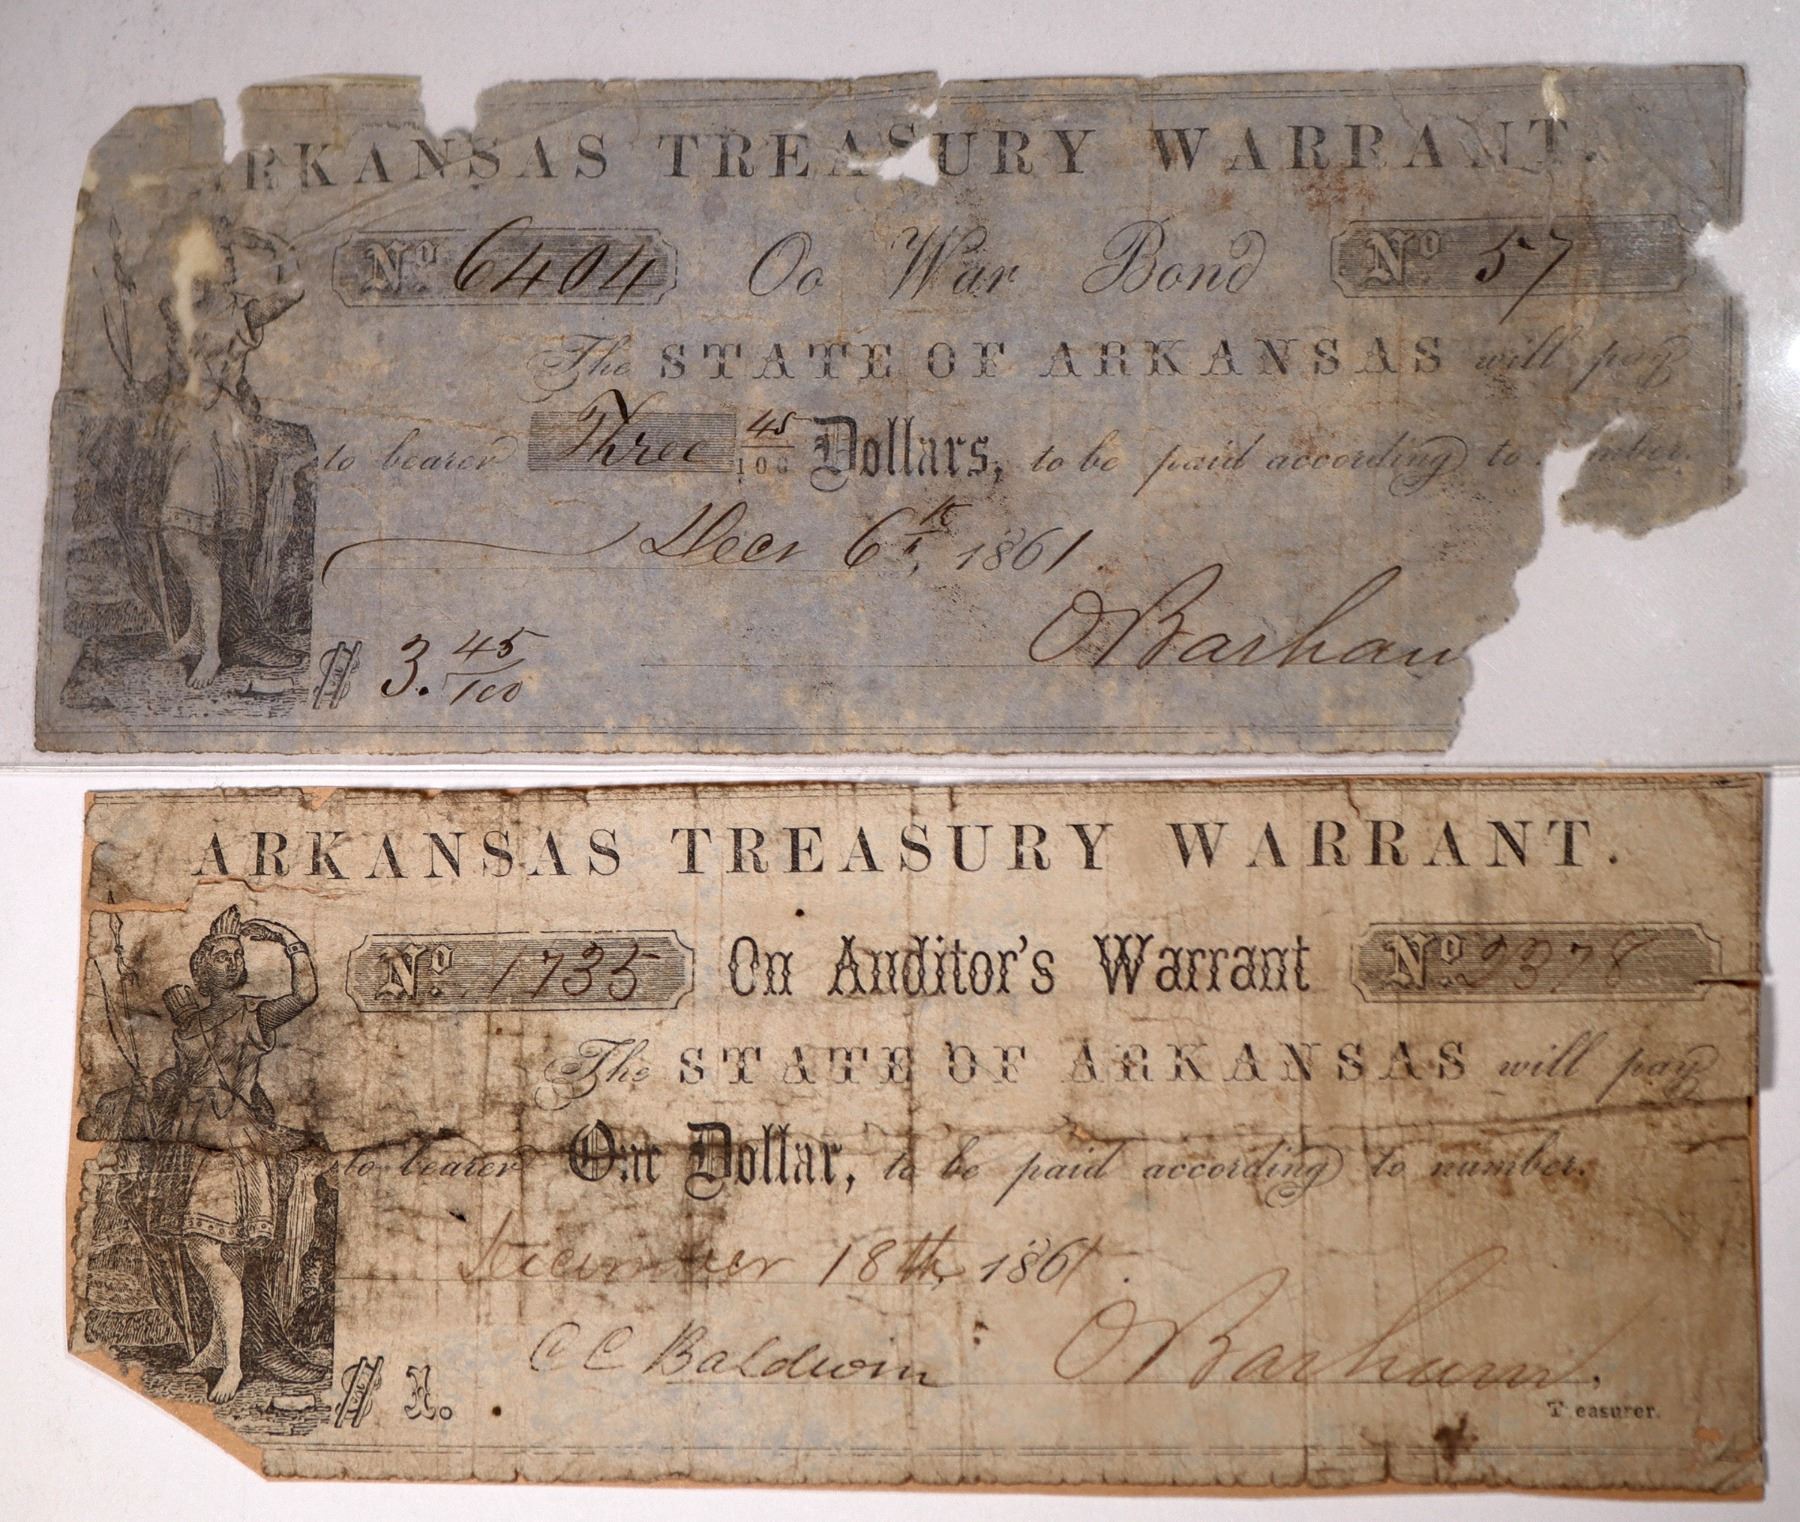 RKANSAS TREASURY WARRANT.
No. 6404 On War Bond No. 57
The STATE OF ARKANSAS will pay
to bearer Three 45/100 Dollars, to be paid according to
Decr 6th, 1861.
$ 3. 45/100
O Barham
ARKANSAS TREASURY WARRANT.
No. 1735 On Auditor's Warrant No. 2378
The STATE OF ARKANSAS will pay
to bearer One Dollar, to be paid according to number.
December 18th, 1861.
$ 1. C C Baldwin O Barham.
Treasurer.